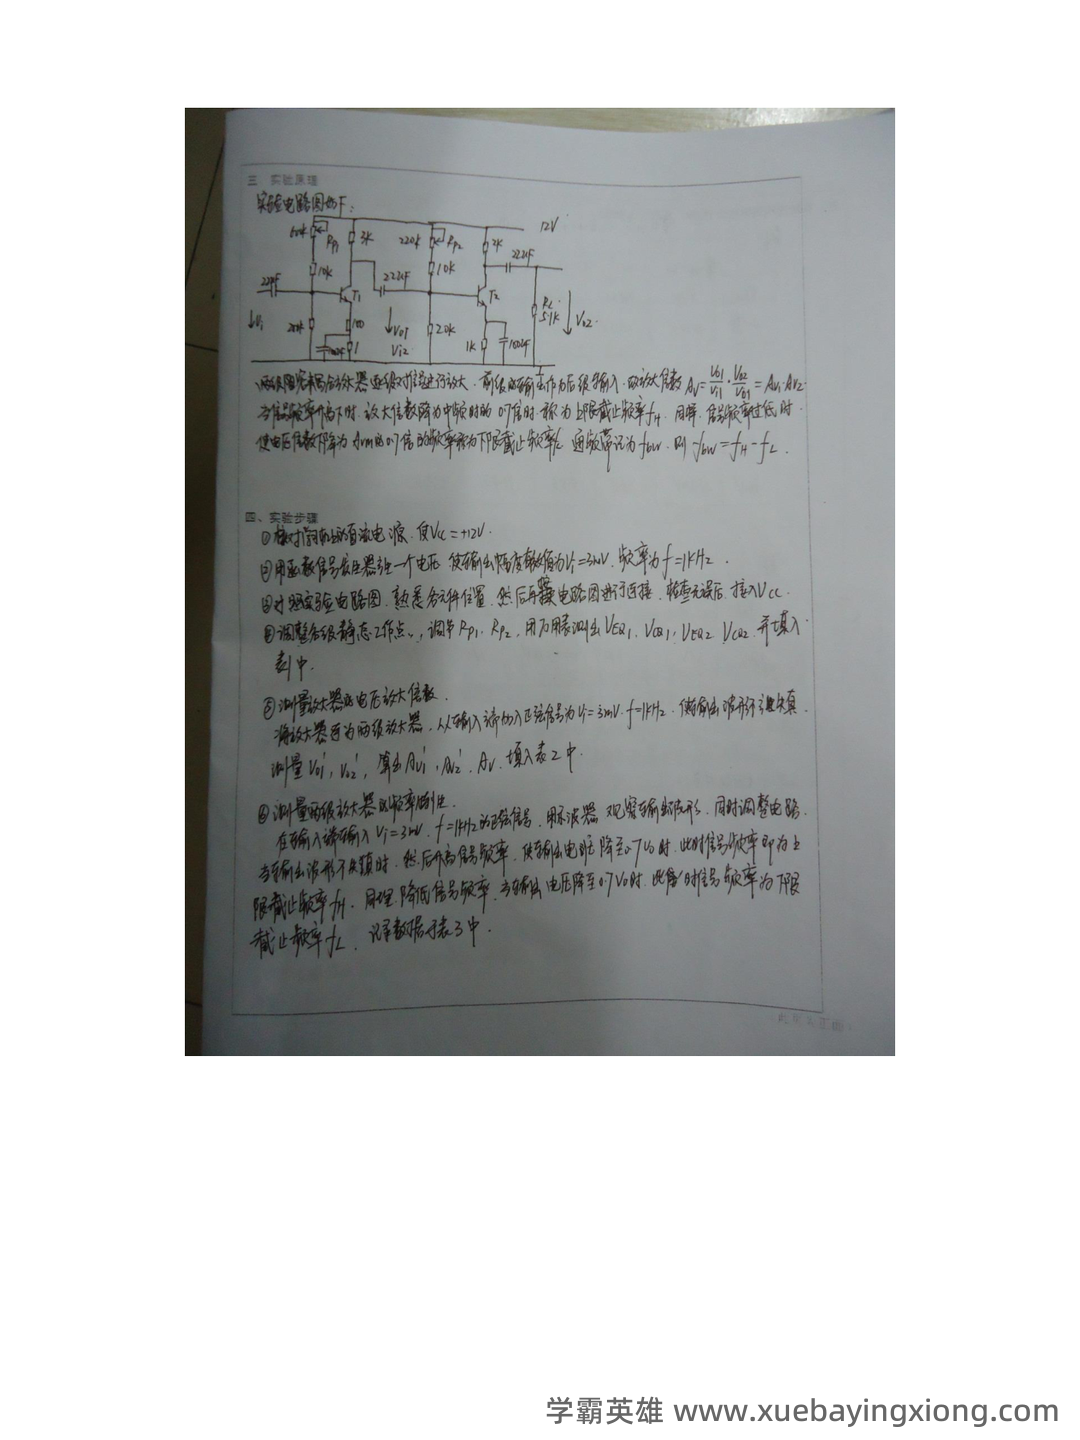 三 实验原理
实验电路图如下:
12V
Rp1 3K 220K Rp2 2K
10K 10K 22uF
22uF 22uF
T1 T2
Vi 20K 100 Vo1 20K RL
5.1K Vo2
Vi2 1K 100uF
两级阻容耦合放大器逐级对信号进行放大. 前级的输出作为后级输入. 放大倍数 Av = Vo1/Vi1 · Vo2/Vo1 = Av1·Av2
当信号频率升高下时, 放大倍数降为中频时的 0.7倍时 称为上限截止频率fH. 同样, 信号频率过低时.
使电压倍数下降为 Avm的0.7倍的频率称为下限截止频率fL 通频带记为 fbw. 则 fbw = fH - fL .
四、实验步骤
① 核对 的直流电源, 使Vcc = +12V.
② 用函数信号发生器 一个电压 使输出幅度 值为Vi=3mV, 频率为 f=1kHz .
③ 对照实验电路图, 熟悉各元件位置, 然后再 电路图进行连接, 检查无误后, 接入Vcc.
④ 调整各级静态工作点, 调节 Rp1. Rp2, 用万用表测出 VEQ1, VCQ1, VEQ2 VCQ2. 并填入
表1中.
⑤ 测量放大器的电压放大倍数.
将放大器 为两级放大器, 从输入端加入正弦信号为Vi=3mV. f=1kHz. 使输出波形不 失真
测量 Vo1', Vo2', 算出 Av1', Av2', Av. 填入表2中.
⑥ 测量两级放大器的频率特性.
在输入端输入 Vi=3mV. f=1kHz的正弦信号, 用示波器 观察输出波形, 同时调整电路.
当输出波形不失真时, 然后升高信号频率, 使输出电压降至0.7Vo时, 此时信号频率即为上
限截止频率fH. 同理 降低信号频率, 当输出电压降至0.7Vo时. 此时信号频率为下限
截止频率fL . 记录数据于表3中.
学霸英雄 www.xuebayingxiong.com